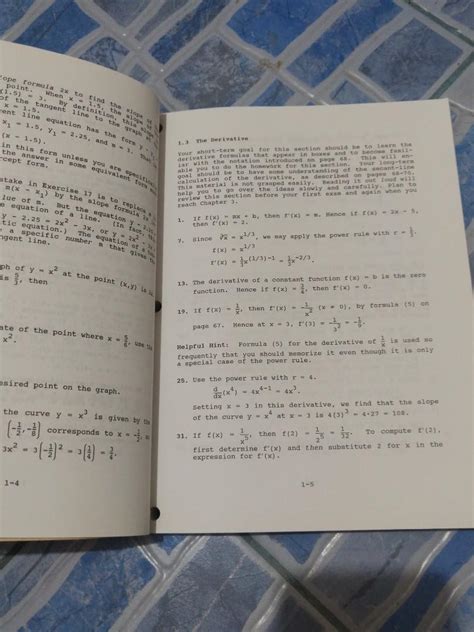 ope formula 2x to find the slope of
point. When x = 1.5, the slope
(1.5) = 3. By definition, the
of the tangent line to the graph
x = 1.5.
ent line equation has the form y -
x₁ = 1.5, y₁ = 2.25, and m = 3. The
(x - 1.5).
in this form unless you are specifi
the answer in some equivalent
cept form.
stake in Exercise 17 is to replace
m(x - x₁) by the slope formula
lue of m. But the formula
the equation of a line. (In fact,
y - 2.25 = 2x² - 3x, or y =
tic equation.) The equation of
a specific number m that gives
ngent line.
ph of y = x² at the point (x,y) is
is 5/3, then
ate of the point where x = 5/6, use the
x².
esired point on the graph.
the curve y = x³ is given by the
(-1/2, -1/8) corresponds to x = -1/2,
3x² = 3(-1/2)² = 3(1/4) = 3/4.
1-4
1.3 The Derivative
Your short-term goal for this section should be to learn the
derivative formulas that appear in boxes and to become famil-
iar with the notation introduced on page 68. This will en-
able you to do the homework for this section. Your long-term
goal should be to have some understanding of the secant-line
calculation of the derivative, as described on pages 68-70.
This material is not grasped easily. Reading it out loud will
help you to go over the ideas slowly and carefully. Plan to
review this section before your first exam and again when you
reach Chapter 3.
1. If f(x) = mx + b, then f'(x) = m. Hence if f(x) = 2x - 5,
then f'(x) = 2.
7. Since ∛x = x^1/3, we may apply the power rule with r = 1/3.
f(x) = x^1/3
f'(x) = 1/3 x^(1/3)-1 = 1/3 x^-2/3
13. The derivative of a constant function f(x) = b is the zero
function. Hence if f(x) = 3/4, then f'(x) = 0.
19. If f(x) = 1/x, then f'(x) = -1/x² (x ≠ 0), by formula (5) on
page 67. Hence at x = 3, f'(3) = -1/3² = -1/9.
Helpful Hint: Formula (5) for the derivative of 1/x is used so
frequently that you should memorize it even though it is only
a special case of the power rule.
25. Use the power rule with r = 4.
d/dx(x⁴) = 4x⁴⁻¹ = 4x³.
Setting x = 3 in this derivative, we find that the slope
of the curve y = x⁴ at x = 3 is 4(3)³ = 4·27 = 108.
31. If f(x) = 1/x⁵, then f(2) = 1/2⁵ = 1/32. To compute f'(2),
first determine f'(x) and then substitute 2 for x in the
expression for f'(x).
1-5